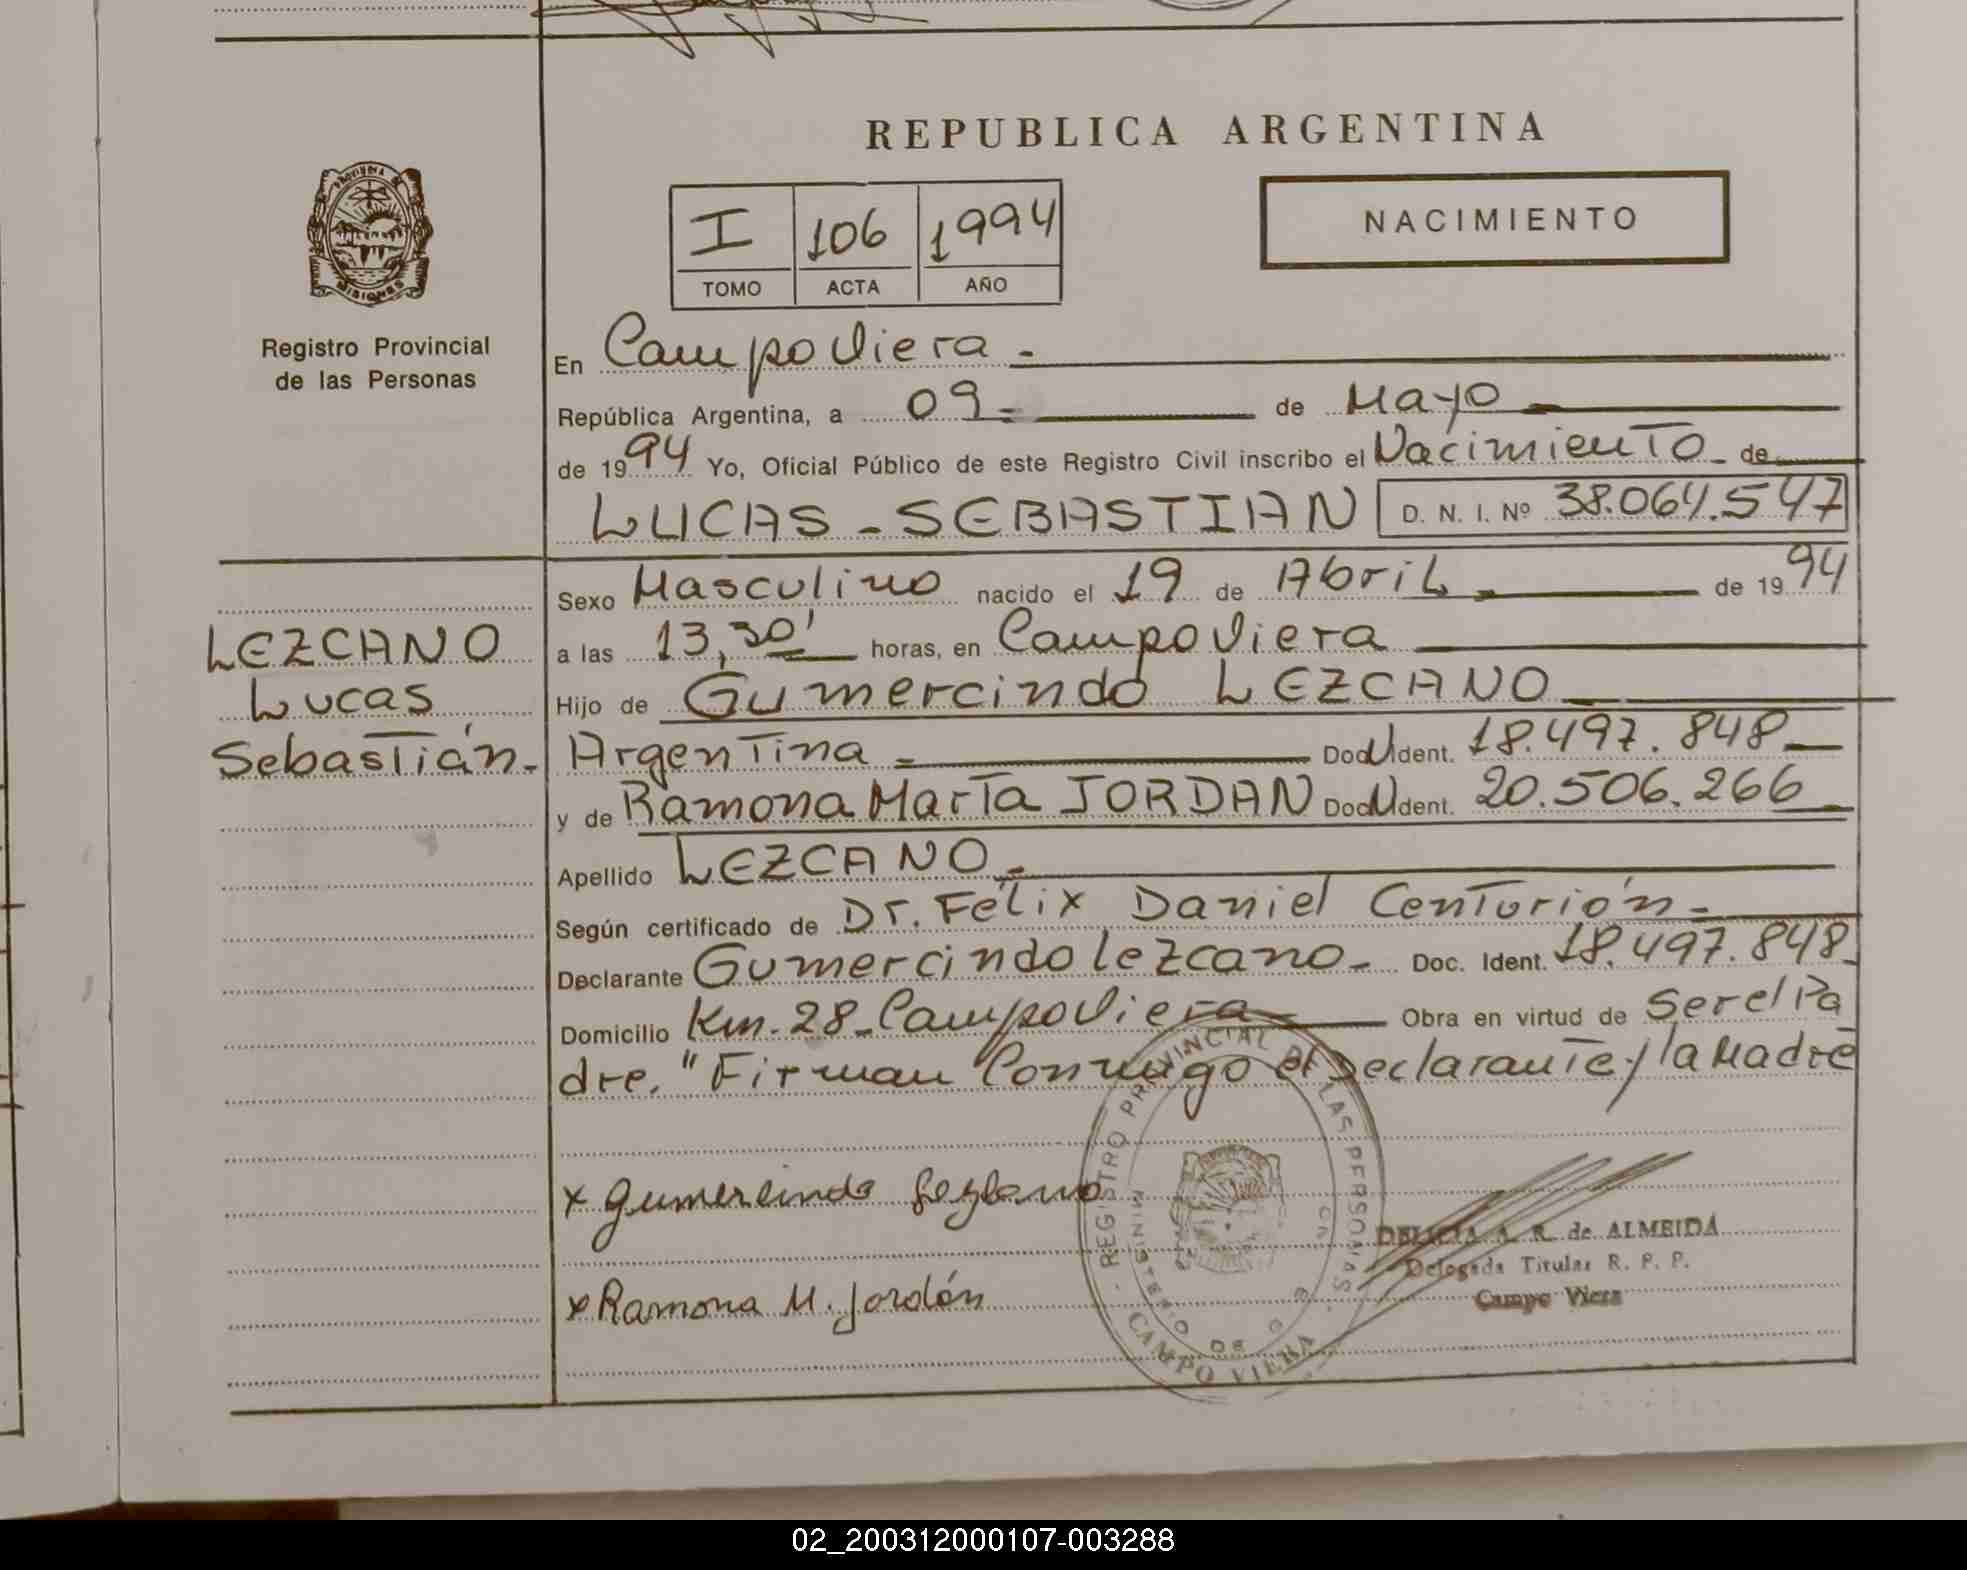 REPUBLICA ARGENTINA
I 106 1994
TOMO ACTA AÑO
NACIMIENTO
PROVINCIA DE
MISIONES
Registro Provincial
de las Personas
En Campo Viera -
República Argentina, a 09 = de Mayo
de 1994 Yo, Oficial Público de este Registro Civil inscribo el Nacimiento - de
LUCAS - SEBASTIAN D. N. I. Nº 38.064.547
Sexo Masculino nacido el 19 de Abril - de 1994
a las 13,30' horas, en Campo Viera
Hijo de Gumercindo LEZCANO
Argentina = DocU Ident. 18.497.848
y de Ramona María JORDAN DocU Ident. 20.506.266
Apellido LEZCANO -
Según certificado de Dr. Félix Daniel Centurión -
Declarante Gumercindo Lezcano - Doc. Ident. 18.497.848
Domicilio Km. 28 - Campo Viera - Obra en virtud de Ser el Pa
dre. "Firman Conmigo el Declarante y la Madre
LEZCANO
Lucas
Sebastián -
x Gumercindo Lezcano
x Ramona M. Jordán
REGISTRO PROVINCIAL DE LAS PERSONAS
MINISTERIO DE G
CAMPO VIERA
DELICIA A. R. de ALMEIDA
Delegada Titular R. P. P.
Campo Viera
02_200312000107-003288